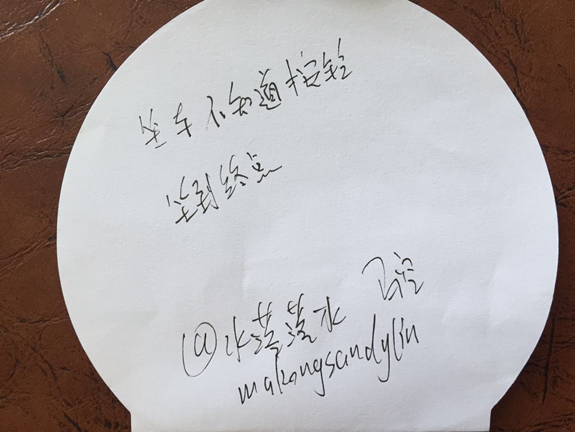 坐车不知道按铃
坐到终点
@水落落水 马空
makongsandylin